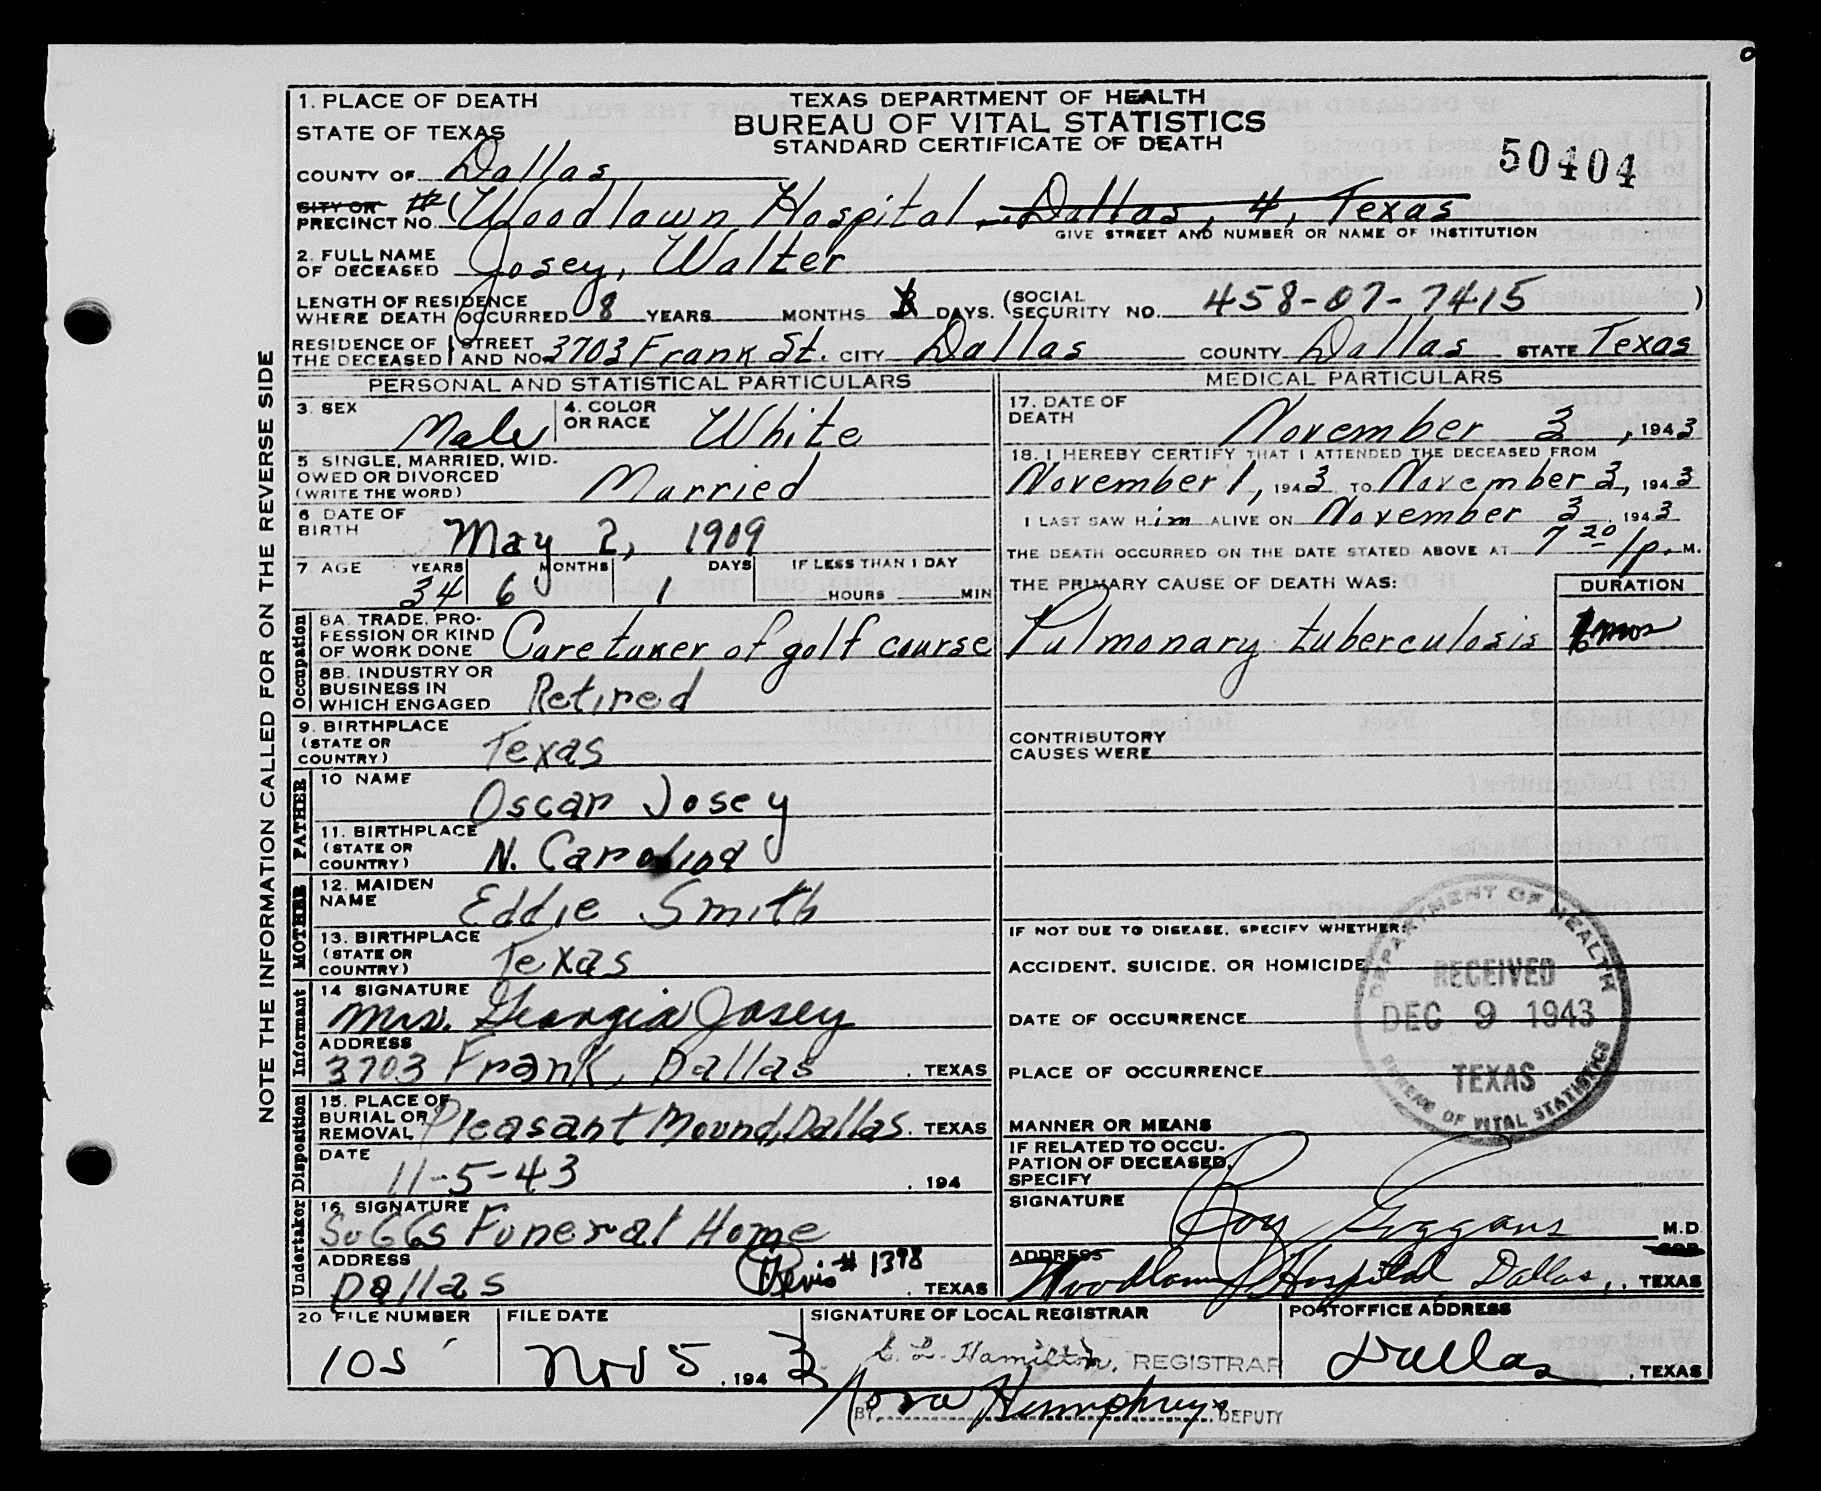 TEXAS DEPARTMENT OF HEALTH
BUREAU OF VITAL STATISTICS
STANDARD CERTIFICATE OF DEATH
50404
1. PLACE OF DEATH
STATE OF TEXAS
COUNTY OF Dallas
CITY OR
PRECINCT NO. Woodlawn Hospital Dallas, 4, Texas
GIVE STREET AND NUMBER OR NAME OF INSTITUTION
2. FULL NAME
OF DECEASED Josey, Walter
LENGTH OF RESIDENCE
WHERE DEATH OCCURRED 8 YEARS MONTHS DAYS. (SOCIAL SECURITY NO. 458-07-7415 )
RESIDENCE OF THE DECEASED STREET AND NO. 3703 Frank St. CITY Dallas COUNTY Dallas STATE Texas
PERSONAL AND STATISTICAL PARTICULARS
3. SEX Male 4. COLOR OR RACE White
5. SINGLE, MARRIED, WID-
OWED OR DIVORCED
(WRITE THE WORD) Married
6 DATE OF
BIRTH May 2, 1909
7 AGE YEARS MONTHS DAYS IF LESS THAN 1 DAY
34 6 1 HOURS MIN
Occupation
8A. TRADE, PRO-
FESSION OR KIND
OF WORK DONE Caretaker of golf course
8B. INDUSTRY OR
BUSINESS IN
WHICH ENGAGED Retired
9. BIRTHPLACE
(STATE OR
COUNTRY) Texas
FATHER
10 NAME Oscar Josey
11. BIRTHPLACE
(STATE OR
COUNTRY) N. Carolina
MOTHER
12. MAIDEN
NAME Eddie Smith
13. BIRTHPLACE
(STATE OR
COUNTRY) Texas
Informant
14 SIGNATURE
Mrs. Georgia Josey
ADDRESS
3703 Frank, Dallas , TEXAS
Disposition
15. PLACE OF
BURIAL OR
REMOVAL Pleasant Mound, Dallas. TEXAS
DATE
11-5-43 , 194
Undertaker
16 SIGNATURE
SuGGs Funeral Home
ADDRESS
Dallas # 1398 , TEXAS
MEDICAL PARTICULARS
17. DATE OF
DEATH November 3, 1943
18. I HEREBY CERTIFY THAT I ATTENDED THE DECEASED FROM
November 1, 1943 TO November 3, 1943
I LAST SAW Him ALIVE ON November 3 1943
THE DEATH OCCURRED ON THE DATE STATED ABOVE AT 7 20 p. M.
THE PRIMARY CAUSE OF DEATH WAS: DURATION
Pulmonary tuberculosis mos
CONTRIBUTORY
CAUSES WERE
IF NOT DUE TO DISEASE, SPECIFY WHETHER:
ACCIDENT, SUICIDE, OR HOMICIDE
DATE OF OCCURRENCE
PLACE OF OCCURRENCE
DEPARTMENT OF HEALTH
RECEIVED
DEC 9 1943
TEXAS
BUREAU OF VITAL STATISTICS
MANNER OR MEANS
IF RELATED TO OCCU-
PATION OF DECEASED,
SPECIFY
SIGNATURE Roy Goggans M.D.
ADDRESS
Woodlawn Hospital, Dallas, , TEXAS
20 FILE NUMBER FILE DATE SIGNATURE OF LOCAL REGISTRAR POSTOFFICE ADDRESS
105 Nov 5, 1943 C. L. Hamilton, REGISTRAR Dallas , TEXAS
BY Nora Humphreys DEPUTY
NOTE THE INFORMATION CALLED FOR ON THE REVERSE SIDE